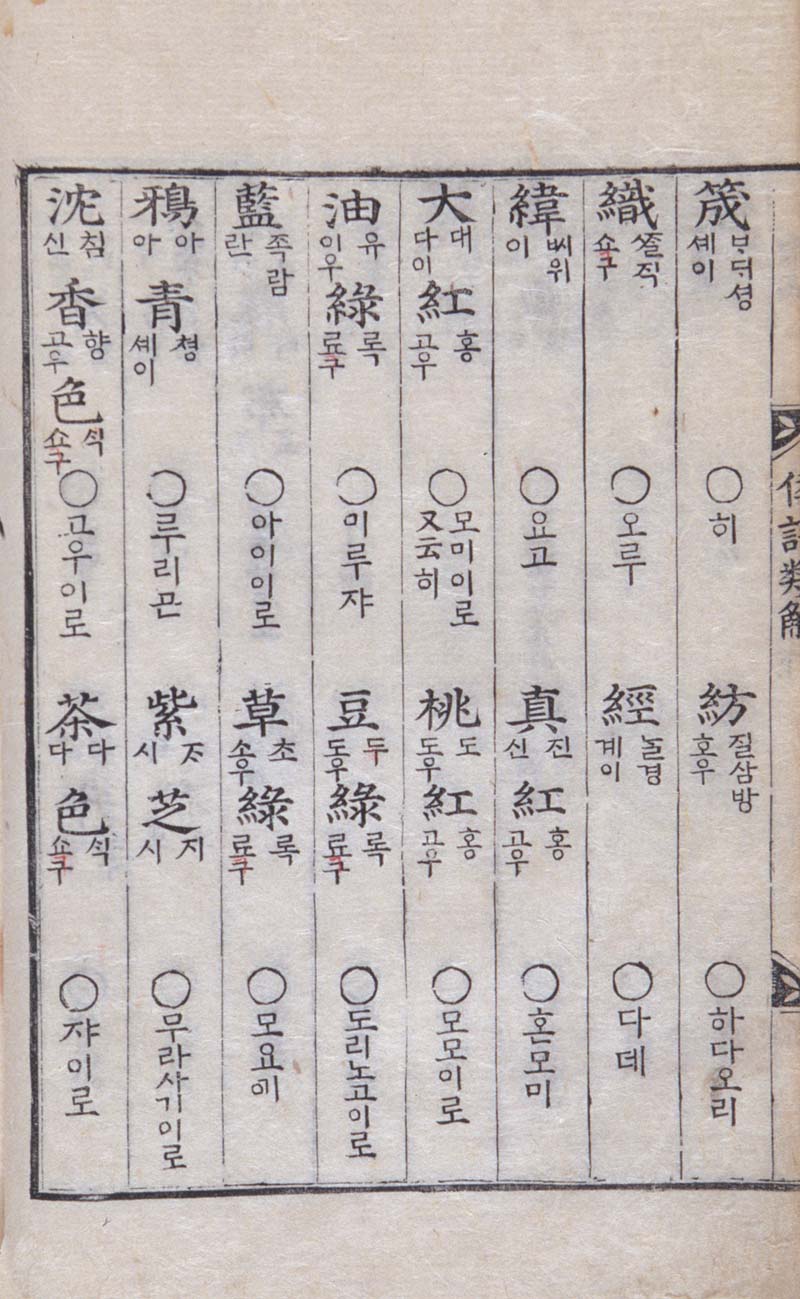 倭語類解
筬 셩 셰이 ○히 紡 질삼방 호우 ○하다오리
織 ᄧᆞᆯ직 쇼구 ○오루 經 ᄂᆞᆯ경 계이 ○다데
緯 ᄡᅵ위 이 ○요고 真 진 신 紅 홍 고우 ○혼모미
大 대 다이 紅 홍 고우 ○모미이로 又云히 桃 도 도우 紅 홍 고우 ○모모이로
油 유 이우 綠 록 료구 ○미루쟈 豆 두 도우 綠 록 료구 ○도리노고이로
藍 족람 란 ○아이이로 草 초 소우 綠 록 료구 ○
鴉 아 아 青 쳥 셰이 ○루리곤 紫 ᄌᆞ 시 芝 지 시 ○무라사기이로
沈 침 신 香 향 고우 色 ᄉᆡᆨ 쇼구 ○고우이로 茶 다 다 色 ᄉᆡᆨ 쇼구 ○쟈이로